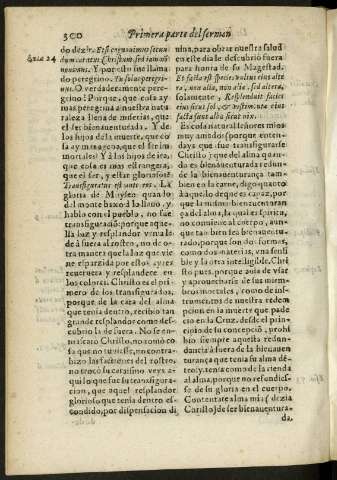 300 Primera parte del sermon
do dezir. Et si cognouimus secun
dum carnem Christum sed iam nõ
nouimus. Y por esto se llama
do peregrino. Tu solus peregri-
nus. O verdaderamente pere-
grino! Porque, que cosa ay
mas peregrina para nuestra na
turaleza llena de miserias, que
el ser bienauenturada. Y de
los hijos de la muerte, que co-
sa ay mas agena, que el ser im-
mortales? Y a los hijos de ira,
que cosa es mas estrangera,
que el ser, y estar gloriosos?
Transfiguratus est ante eos. La
gloria de Moysen quando
del monte baxò a lo llano, y
hablo con el pueblo, no fue
transfiguracõ: porque aque-
lla luz y resplandor venia
de afuera al rostro, no de o-
tra manera que la luz que vie
ne esparzida por estos ayres
reueruera y resplandece en
los colores. Christo es el pri-
mero de los transfigurados,
porque de la cara del alma
que tenia dentro, recibio tan
grande resplandor como des-
cubrio la de fuera. No se en-
mascarò Christo, no tomò co
sa que no tuuiesse, no contra-
hizo las facciones del rostro,
no trocò su carauisino veys a-
qui lo que fue su transfigura-
cion, que aquel resplandor
glorioso que tenia dentro es-
condido, por dispensacion di
uina, para obrar nuestra salud
en este dia le descubriò fuera
para honra de su Magestad.
Et facta est species vultus eius alte
ra, non alia, non alia, sed altera,
solamente. Resplenduit facies
eius sicut sol, &c. vestimenta eius
facta sunt alba sicut nix.
Es cosa natural señores mios
muy amados (porque enten-
days que fue transfigurarse
Christo) que del alma quan-
do es bienauenturada redun-
de la bienauenturança tam-
bien en la carne, digo quanto
à aquello de que es capaz, por
que la misma bienauenturan
ça del alma, la qual es spiritu,
no comunica al cuerpo, aun
que tambien sea bienauentu-
rado, porque son dos formas,
como dos materias, vna sensi
ble y la otra inteligible. Chri
sto pues, porque auia de vsar
y aprouecharse de sus miem-
bros mortales, como de ins-
trumentos de nuestra redem
pcion en la muerte que pade
cio en la Cruz, desde el prin-
cipio de su concepcion, prohi
bio siempre aquesta redun-
dancia fuera de la bienauen-
turança que tenia su alma de-
tro; y tenia como de la rienda
al alma, porque no refundies-
se de su gloria en el cuerpo.
Contentate alma mia (dezia
Christo) de ser bienauentura-
da,